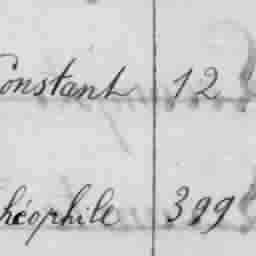 Constant 12
Théophile 399